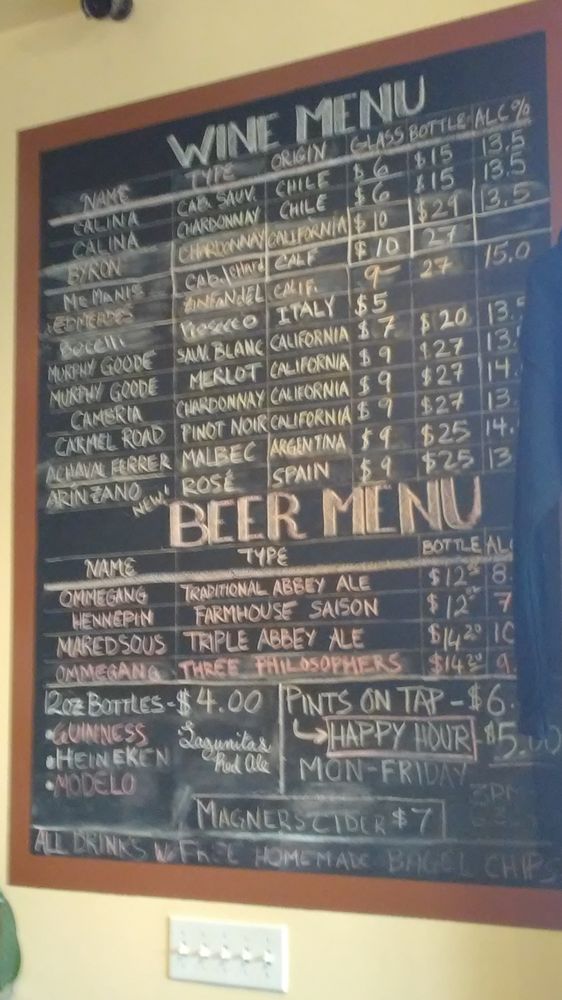 WINE MENU
NAME TYPE ORIGIN GLASS BOTTLE ALC%
CALINA CAB. SAUV. CHILE $6 $15 13.5
CALINA CHARDONNAY CHILE $6 $15 13.5
BYRON CHARDONNAY CALIFORNIA $10 $29 13.5
McManis CAB./Chard CALF $10 27
EDMEADES ZINFANDEL CALIF. 9- 27 15.0
Bocelli Prosecco ITALY $5
MURPHY GOODE SAUV. BLANC CALIFORNIA $7 $20 13.
MURPHY GOODE MERLOT CALIFORNIA $9 $27 13.
CAMBRIA CHARDONNAY CALIFORNIA $9 $27 14.
CARMEL ROAD PINOT NOIR CALIFORNIA $9 $27 13
ACHAVAL FERRER MALBEC ARGENTINA $9 $25 14.
ARINZANO NEW! ROSÉ SPAIN $9 $25 13
BEER MENU
NAME TYPE BOTTLE ALC
OMMEGANG TRADITIONAL ABBEY ALE 8.
HENNEPIN FARMHOUSE SAISON 7
MAREDSOUS TRIPLE ABBEY ALE 10
OMMEGANG THREE PHILOSOPHERS 9.
12oz BOTTLES-$4.00
•GUINNESS
•HEINEKEN
•MODELO
Lagunitas
Red Ale
PINTS ON TAP-$6.
HAPPY HOUR-$5.00
MON-FRIDAY
3PM
MAGNERS CIDER $7
ALL DRINKS W/ FREE HOMEMADE BAGEL CHIPS